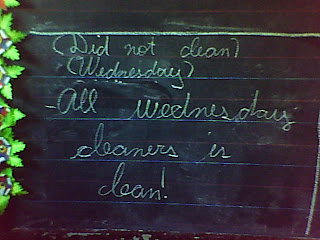 (Did not clean)
(Wednesday)
-All wednesday
cleaners is
clean!